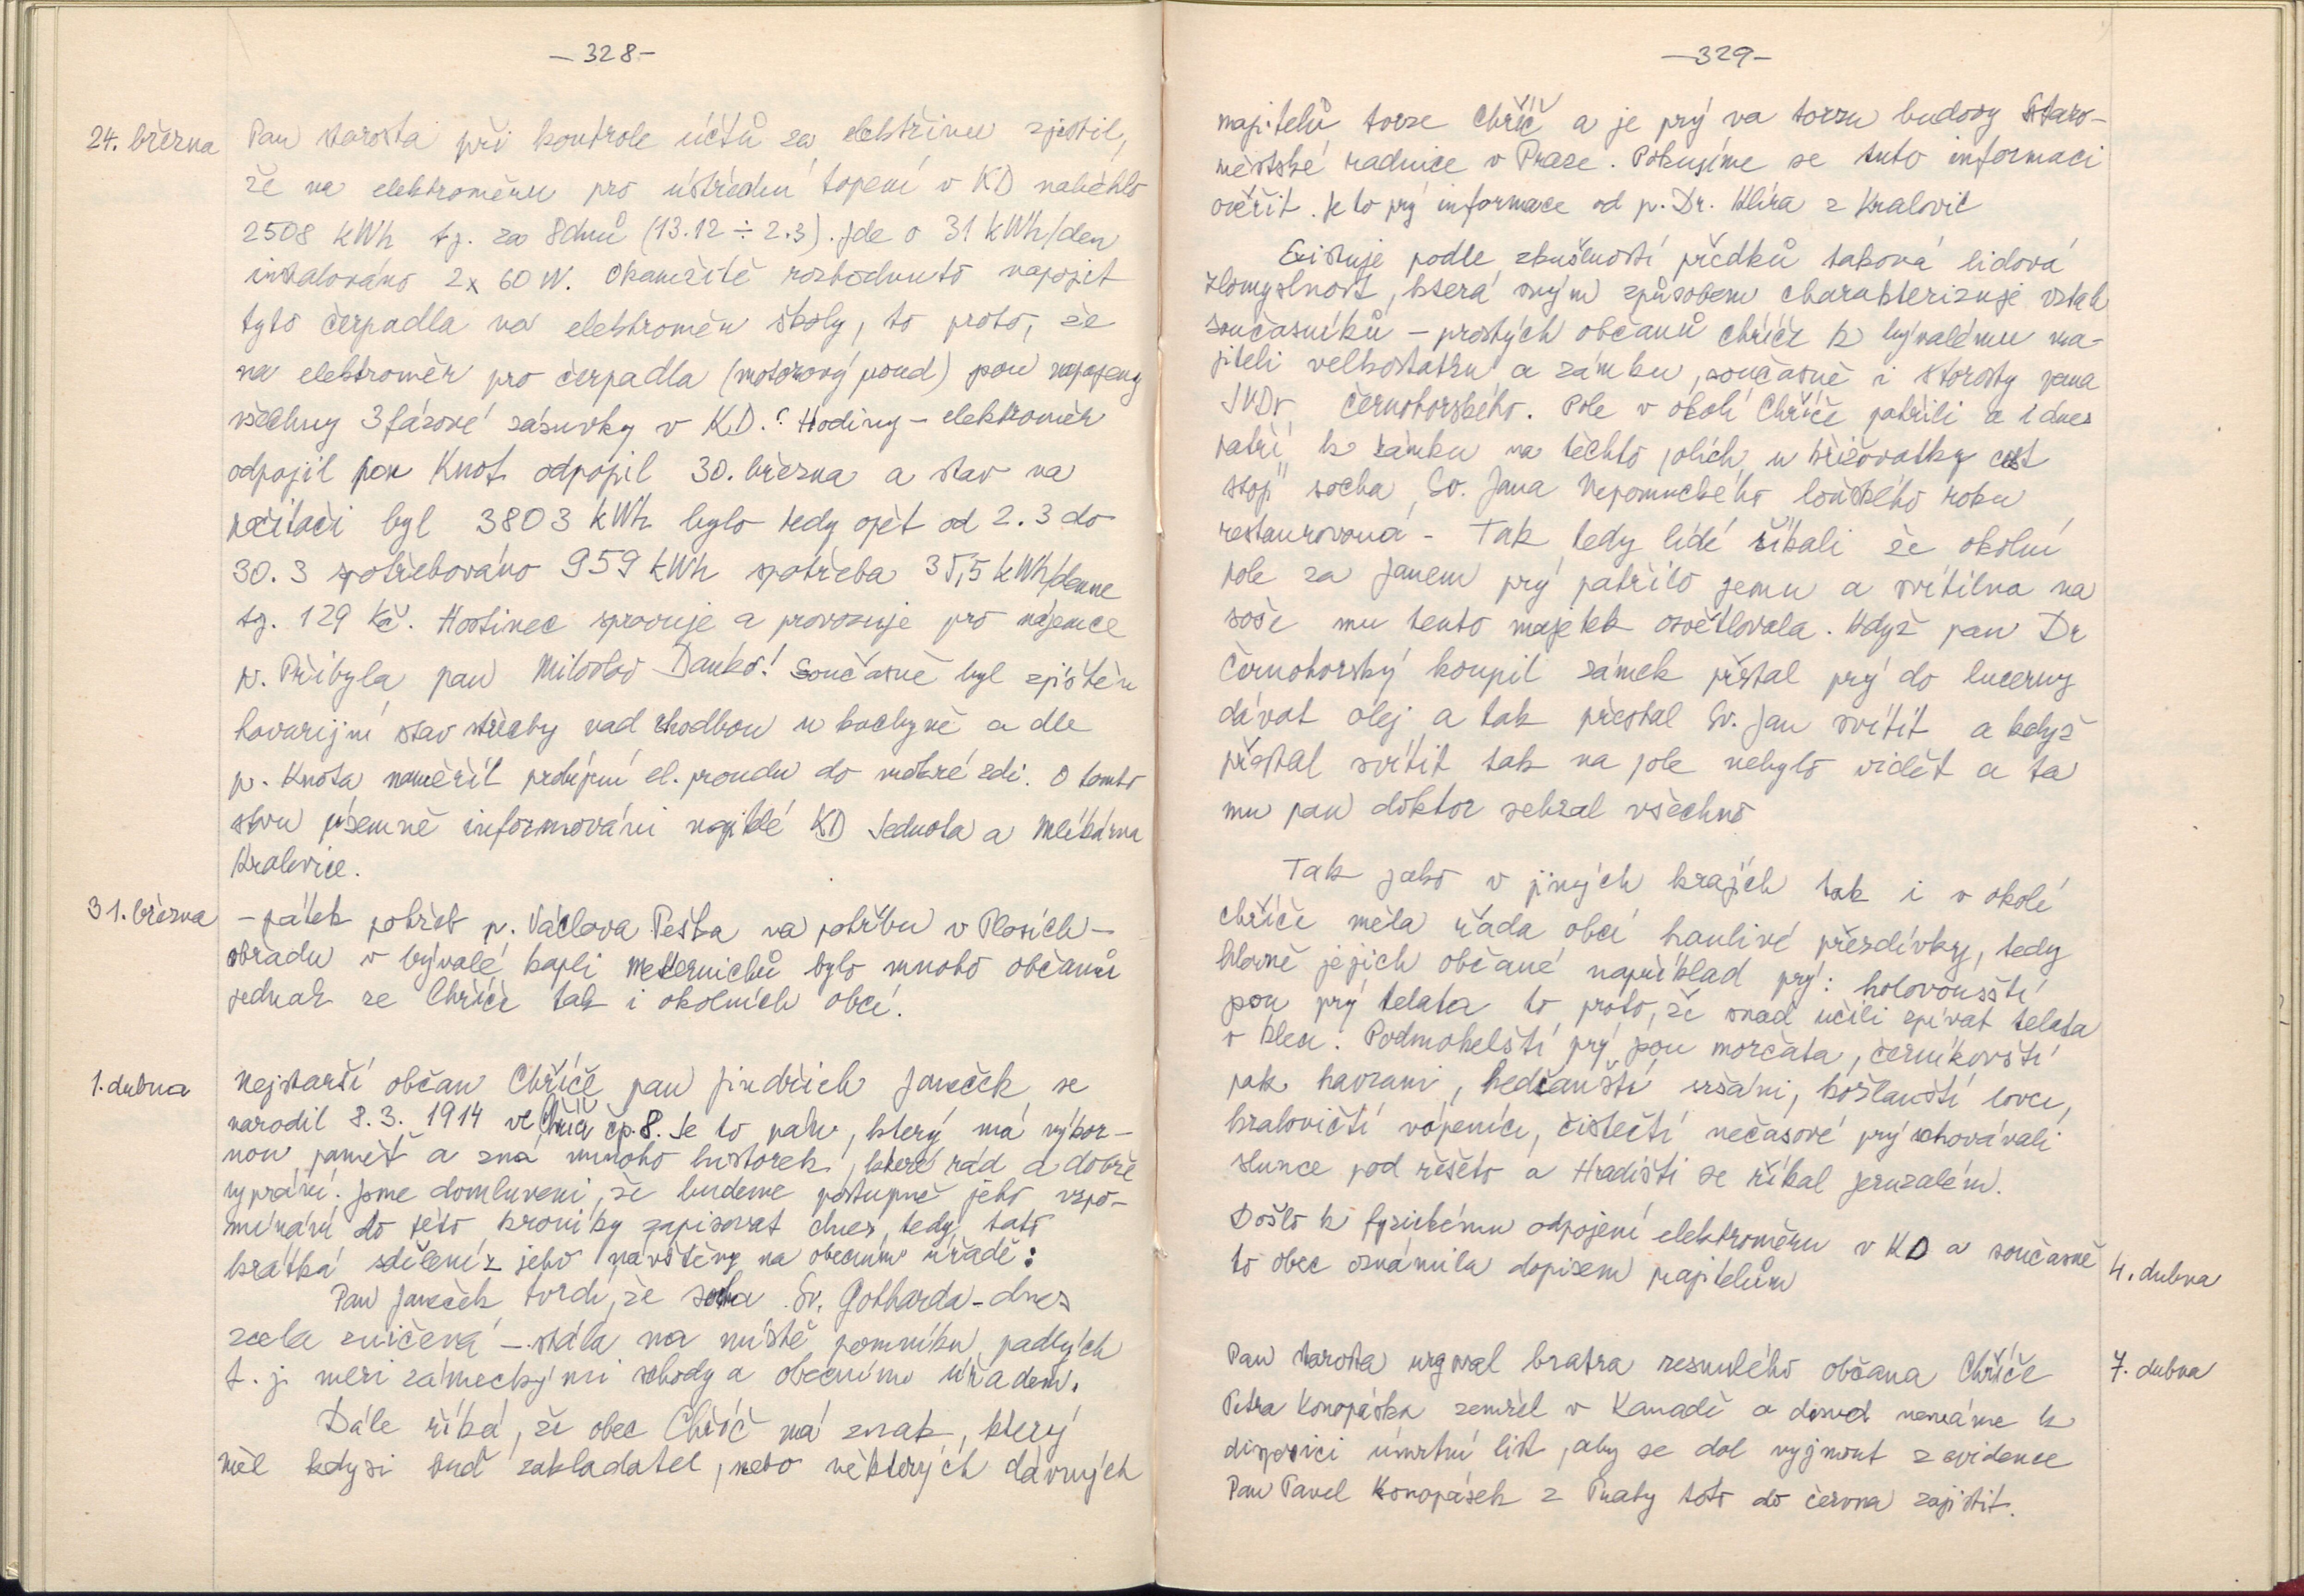 - 328 -
24. března Pan starosta při kontrole účtů za elektřinu zjistil,
že na elektroměru pro ústřední topení v KD naběhlo
2508 kWh tj. za 8dnů (13.12 ÷ 2.3). Jde o 31 kWh/den
instalováno 2x 60 W. Okamžitě rozhodnuto napojit
tyto čerpadla na elektroměr školy, to proto, že
na elektroměr pro čerpadla (motorový proud) jsou napojeny
všechny 3 fázové zásuvky v KD. Hodiny - elektroměr
odpojil pan Knot odpojil 30. března a stav na
počítači byl 3803 kWh bylo tedy opět od 2.3 do
30. 3 spotřebováno 959 kWh spotřeba 35,5 kWh/denne
tj. 129 Kč. Hostinec spravuje a provozuje pro nájemce
p. Přibyla pan Miloslav Danko! Současně byl zjištěn
havarijní stav střechy nad chodbou u kuchyně a dle
p. Knota naměřil el. proudu do mokré zdi. O tomto
stvu písemně informováni KD Jednota a Mlékárna
Kralovice.
31. března - pátek pohřeb p. Václava Peška na pohřbu v Plasích -
obradu v bývalé kapli Metternichů bylo mnoho občanů
jednak ze Chříče tak i okolních obcí.
1. dubna Nejstarší občan Chříče pan Jindřich Janeček se
narodil 8. 3. 1914 ve Chříči čp. 8. Je to pán, který má výbor-
nou paměť a zná mnoho historek, které rád a dobře
vypráví. Jsme domluveni, že budeme postupně jeho vzpo-
mínání do této kroniky zapisovat dnes, tedy, tato
krátká sdělení z jeho návštěvy na obecním úřadě:
Pan Janeček tvrdí, že socha Sv. Gotharda - dnes
zcela zničená - stála na místě pomníku padlých
t. j. mezi zámeckými schody a obecním úřadem.
Dále říká, že obec Chříč má znak, který
měl kdysi buď zakladatel, nebo některých dávných
- 329 -
majitelů tvrze Chříč a je prý na torzu budovy Staro-
městské radnice v Praze. Pokusíme se tuto informaci
ověřit. Je to prý informace od p. Dr. Klíra z Kralovic
Existuje podle zkušeností předků taková lidová
zlomyslnost, která svým způsobem charakterizuje vztah
současníků - prostých občanů Chříče k bývalému ma-
jiteli velkostatku a zámku, současně i starosty pana
JUDr Černohorského. Pole v okolí Chříče patřili a i dnes
patří k zámku na těchto polích u křižovatky cest
stojí socha Sv. Jana Nepomuckého loňského roku
restaurovaná - Tak tedy lidé říkali že okolní
pole za Janem prý patřilo jemu a svítilna na
soše mu tento majetek osvětlovala. Když pan Dr
Černohorský koupil zámek přestal prý do lucerny
dávat olej a tak přestal Sv. Jan svítit a když
přestal svítit tak na pole nebylo vidět a ta
mu pan doktor sebral všechno
Tak jako v jiných krajích tak i v okolí
Chříče měla řada obcí hanlivé přezdívky, tedy
hlavně jejich občané například prý: holovousští
jsou prý telata to proto, že snad učili zpívat telata
v kleci. Podmokelští prý jsou morčata, černíkovští
pak havrani, hedčanští sršáni, kožlanští lovci,
kralovičtí vápeníci, čistečtí nečasové prý schovávali
slunce pod řešeto a Hradišti se říkal Jeruzalém.
Došlo k fyzickému odpojení elektroměru v KD a současně 4. dubna
to obec oznámila dopisem majitelům
Pan starosta urgoval bratra zesnulého občana Chříče 7. dubna
Petra Konopáska zemřel v Kanadě a dosud nemáme k
dispozici úmrtní list, aby se dal vyjmout z evidence
Pan Pavel Konopásek z Prahy toto do června zajistit.